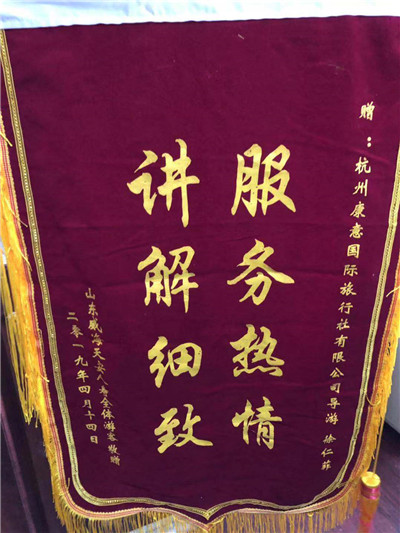 赠：杭州康意国际旅行社有限公司导游 徐仁菲
服务热情
讲解细致
山东威海天安人寿全体游客敬赠
二零一九年四月十四日